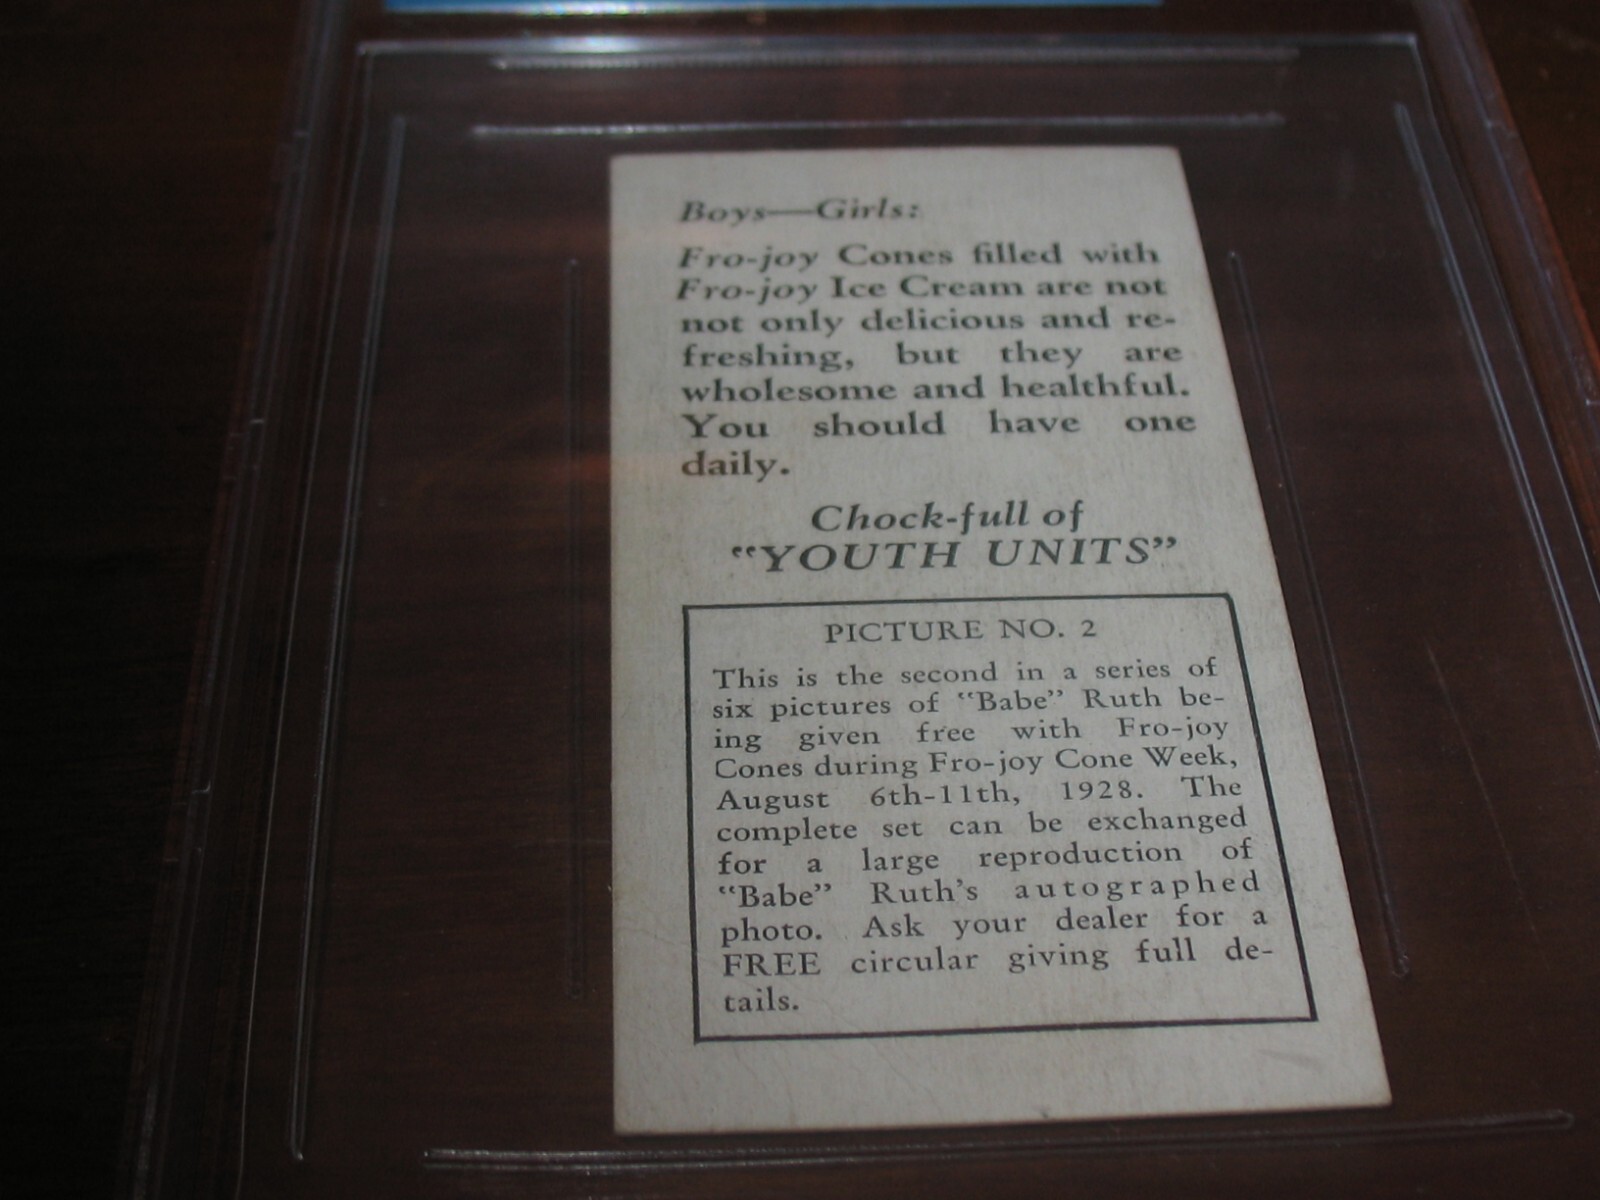 Boys—Girls:
Fro-joy Cones filled with
Fro-joy Ice Cream are not
not only delicious and re-
freshing, but they are
wholesome and healthful.
You should have one
daily.
Chock-full of
“YOUTH UNITS”
PICTURE NO. 2
This is the second in a series of
six pictures of “Babe” Ruth be-
ing given free with Fro-joy
Cones during Fro-joy Cone Week,
August 6th-11th, 1928. The
complete set can be exchanged
for a large reproduction of
“Babe” Ruth’s autographed
photo. Ask your dealer for a
FREE circular giving full de-
tails.